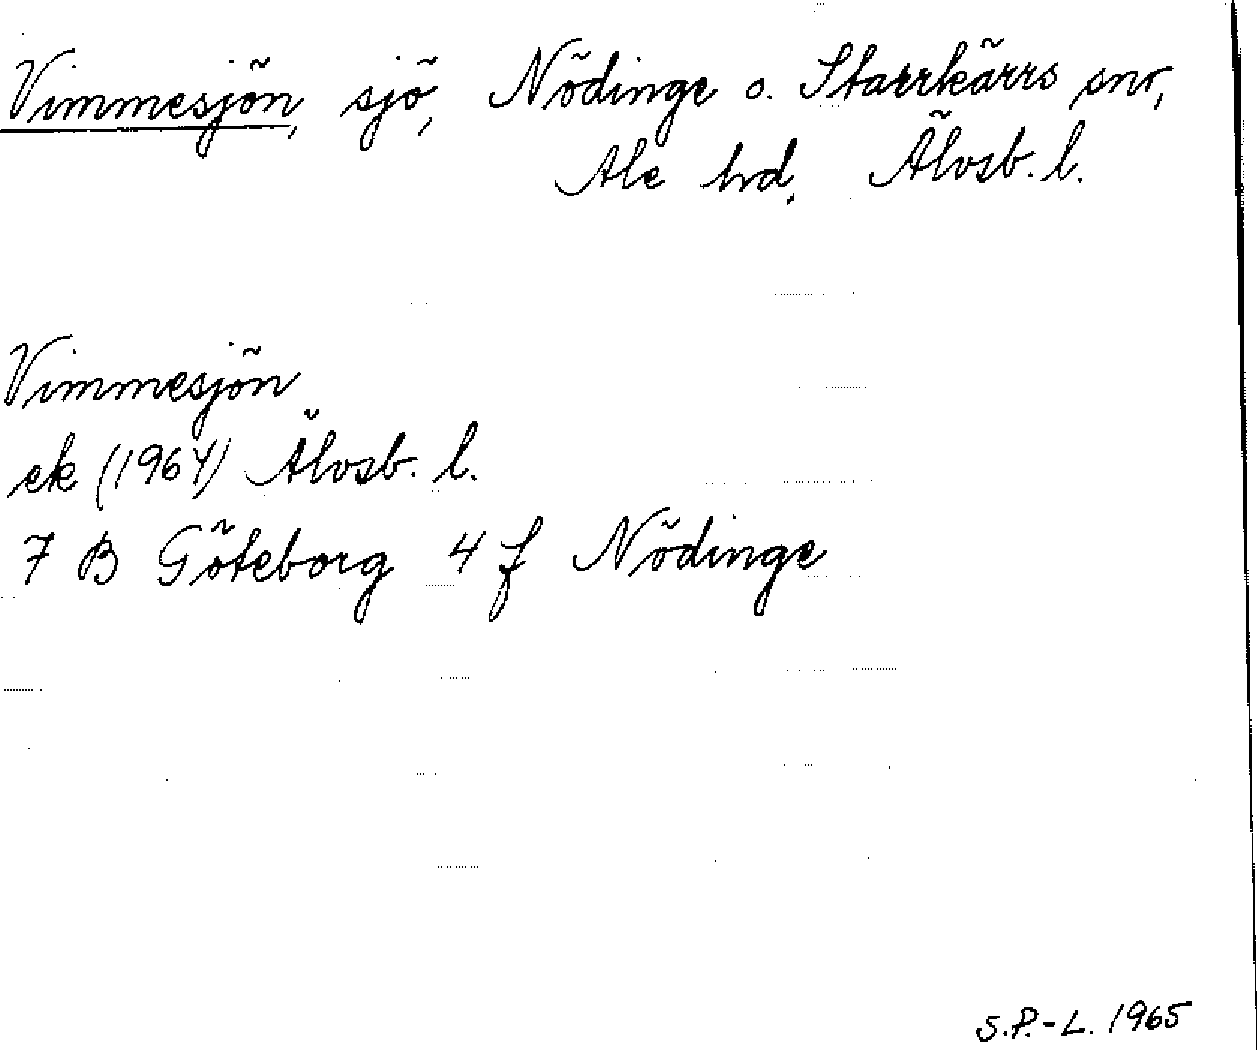 Vimmesjön, sjö, Nödinge o. Starrkärrs snr,
Ale hd, Älvsb. l.
Vimmesjön
ek (1964) Älvsb. l.
7 B Göteborg 4 f Nödinge
S.P.-L. 1965